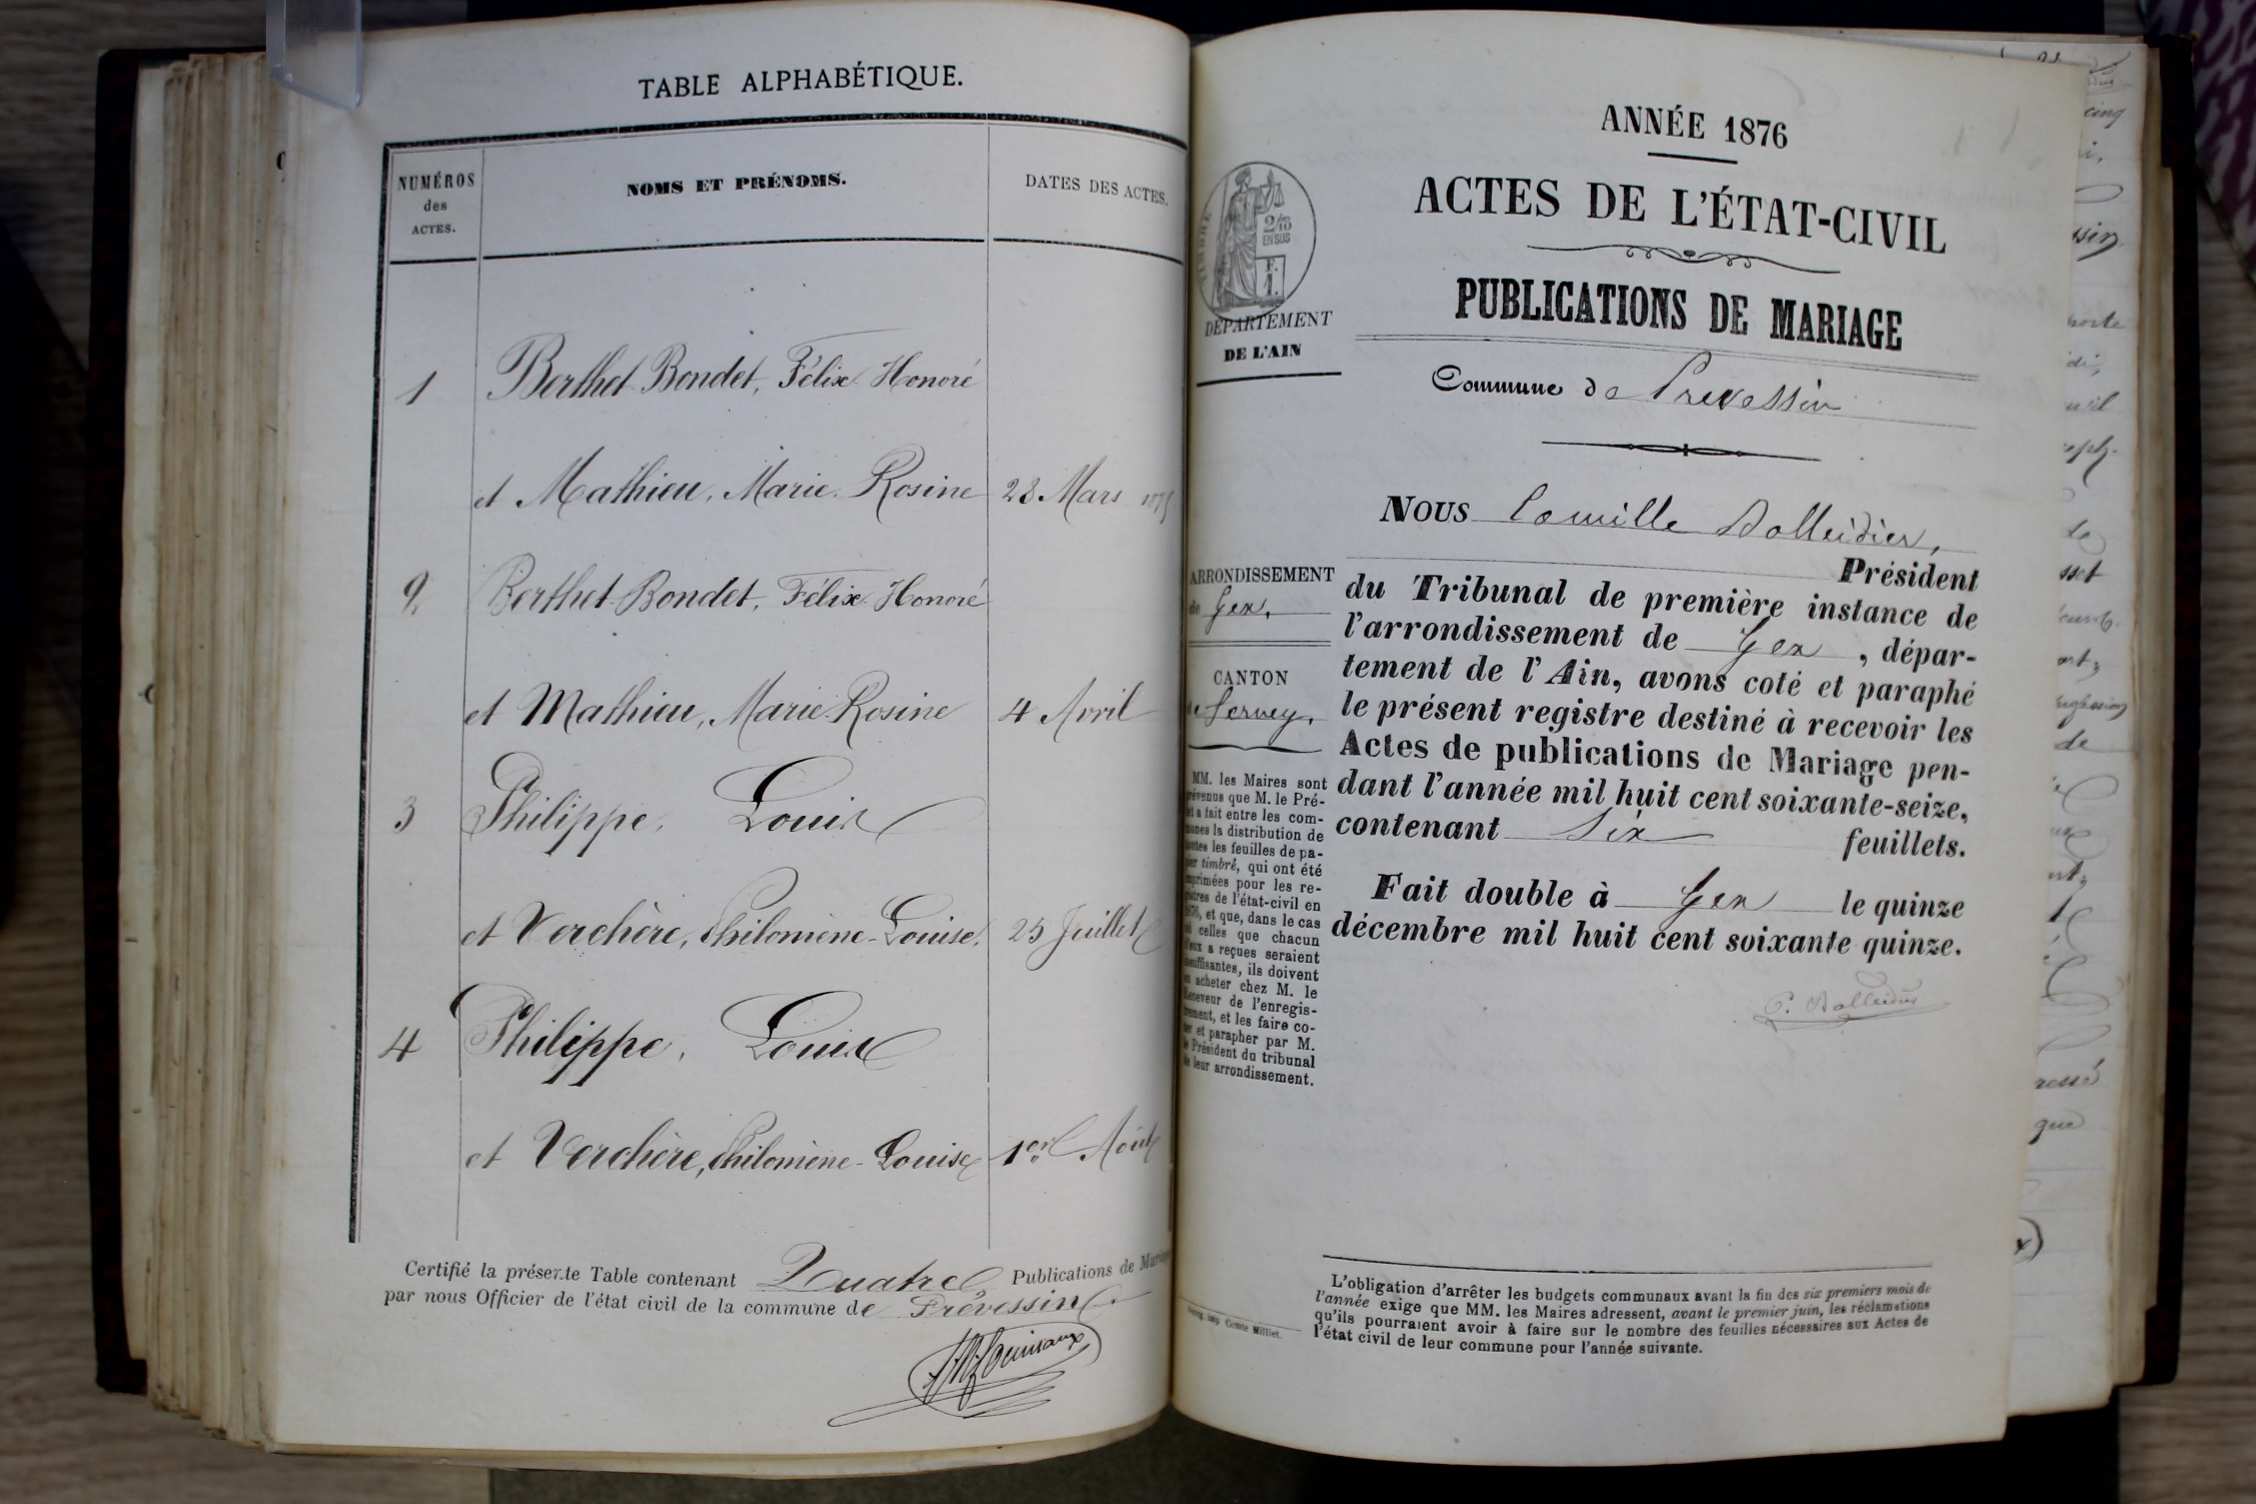 TABLE ALPHABÉTIQUE.
NUMÉROS
des
ACTES.
NOMS ET PRÉNOMS.
DATES DES ACTES.
1 Berthet-Bondet, Félix Honoré
et Mathieu, Marie Rosine 28 Mars 1875
2 Berthet-Bondet, Félix Honoré
et Mathieu, Marie Rosine 4 Avril
3 Philippe, Louis
et Verchère, Philomène-Louise. 25 Juillet
4 Philippe, Louis
et Verchère, Philomène-Louise 1er Août
Certifié la présente Table contenant Quatre Publications de Mariage
par nous Officier de l'état civil de la commune de Prévessin
ANNÉE 1876
ACTES DE L'ÉTAT-CIVIL
PUBLICATIONS DE MARIAGE
2/10
EN SUS
F.
1.
DÉPARTEMENT
DE L'AIN
Commune de Prevessin
Nous Camille
Président
du Tribunal de première instance de
l'arrondissement de Gex, dépar-
tement de l'Ain, avons coté et paraphé
le présent registre destiné à recevoir les
Actes de publications de Mariage pen-
dant l'année mil huit cent soixante-seize,
contenant Six feuillets.
Fait double à Gex le quinze
décembre mil huit cent soixante quinze.
ARRONDISSEMENT
de Gex.
CANTON
de Ferney.
MM. les Maires sont
prévenus que M. le Pré-
fet a fait entre les com-
munes la distribution de
toutes les feuilles de pa-
pier timbré, qui ont été
imprimées pour les re-
gistres de l'état-civil en
1876, et que, dans le cas
où celles que chacun
d'eux a reçues seraient
insuffisantes, ils doivent
en acheter chez M. le
Receveur de l'enregis-
trement, et les faire co-
ter et parapher par M.
le Président du tribunal
de leur arrondissement.
L'obligation d'arrêter les budgets communaux avant la fin des six premiers mois de
l'année exige que MM. les Maires adressent, avant le premier juin, les réclamations
qu'ils pourraient avoir à faire sur le nombre des feuilles nécessaires aux Actes de
l'état civil de leur commune pour l'année suivante.